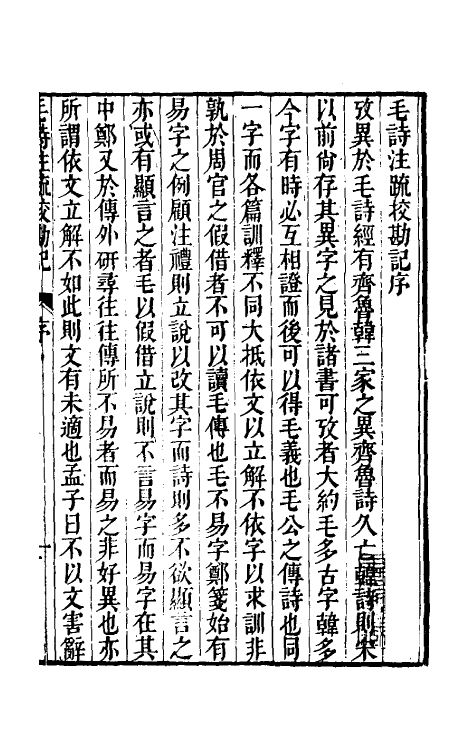 毛詩注疏挍勘記序
攷異於毛詩經有齊魯韓三家之異齊魯詩久亡韓詩則宋
以前尚存其異字之見於諸書可攷者大約毛多古字韓多
今字有時必互相證而後可以得毛義也毛公之傳詩也同
一字而各篇訓釋不同大抵依文以立解不依字以求訓非
孰於周官之假借者不可以讀毛傳也毛不易字鄭箋始有
易字之例顧注禮則立說以改其字而詩則多不欲顯言之
亦或有顯言之者毛以假借立說則不言易字而易字在其
中鄭又於傳外研尋往往傳所不易者而易之非好異也亦
所謂依文立解不如此則文有未適也孟子曰不以文害辭
毛詩注疏挍勘記 序 一